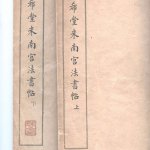 希堂米南宮法書帖 上
希堂米南宮法書帖 下